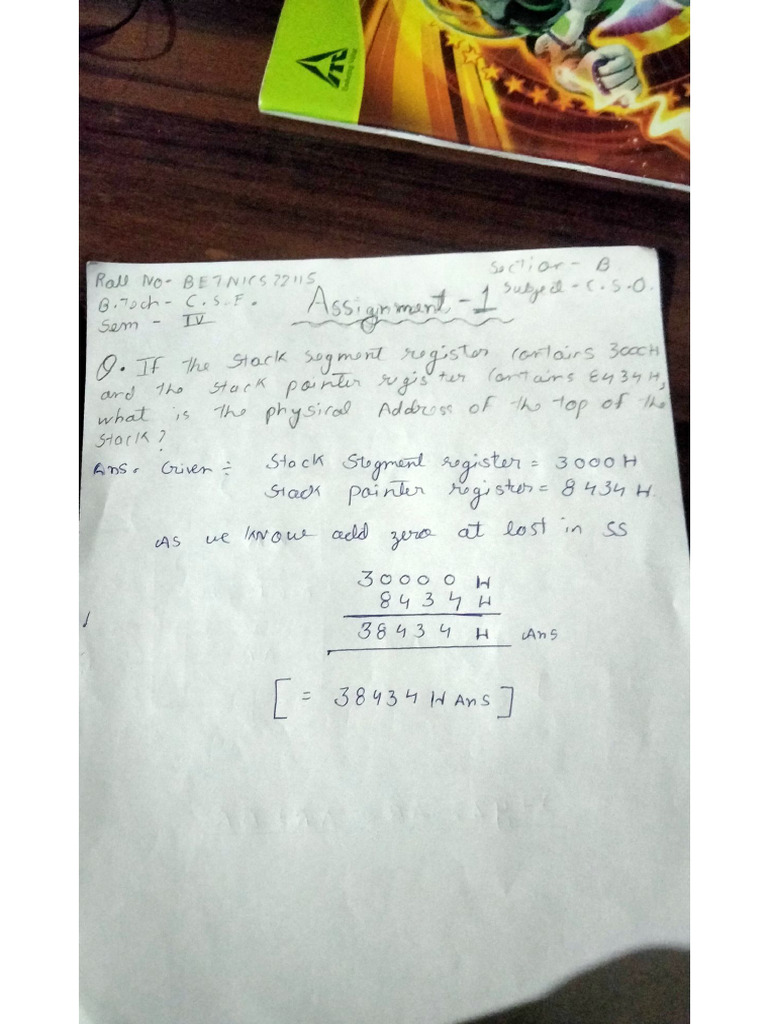 Roll No- BETN1CS22115
Section - B
B.Tech - C.S.E.
Subject - C.S.O.
Sem - IV
Assignment - 1
Q. If the stack segment register contains 3000H
and the stack pointer register contains 8434H,
what is the physical Address of the top of the
stack?
Ans. Given ÷ Stack Stegment register = 3000H
Stack pointer register = 8434H.
As we know add zero at last in SS
30000 H
8434 H
38434 H Ans
[ = 38434 H Ans ]